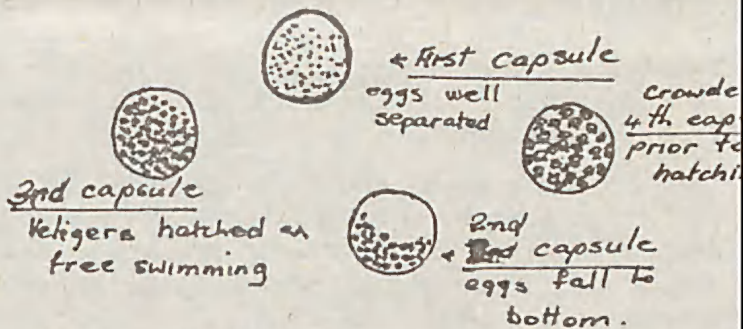 First capsule
eggs well
separated
crowde
4th cap
prior to
hatchi
3nd capsule
Veligers hatched &
free swimming
2nd
capsule
eggs fall to
bottom.